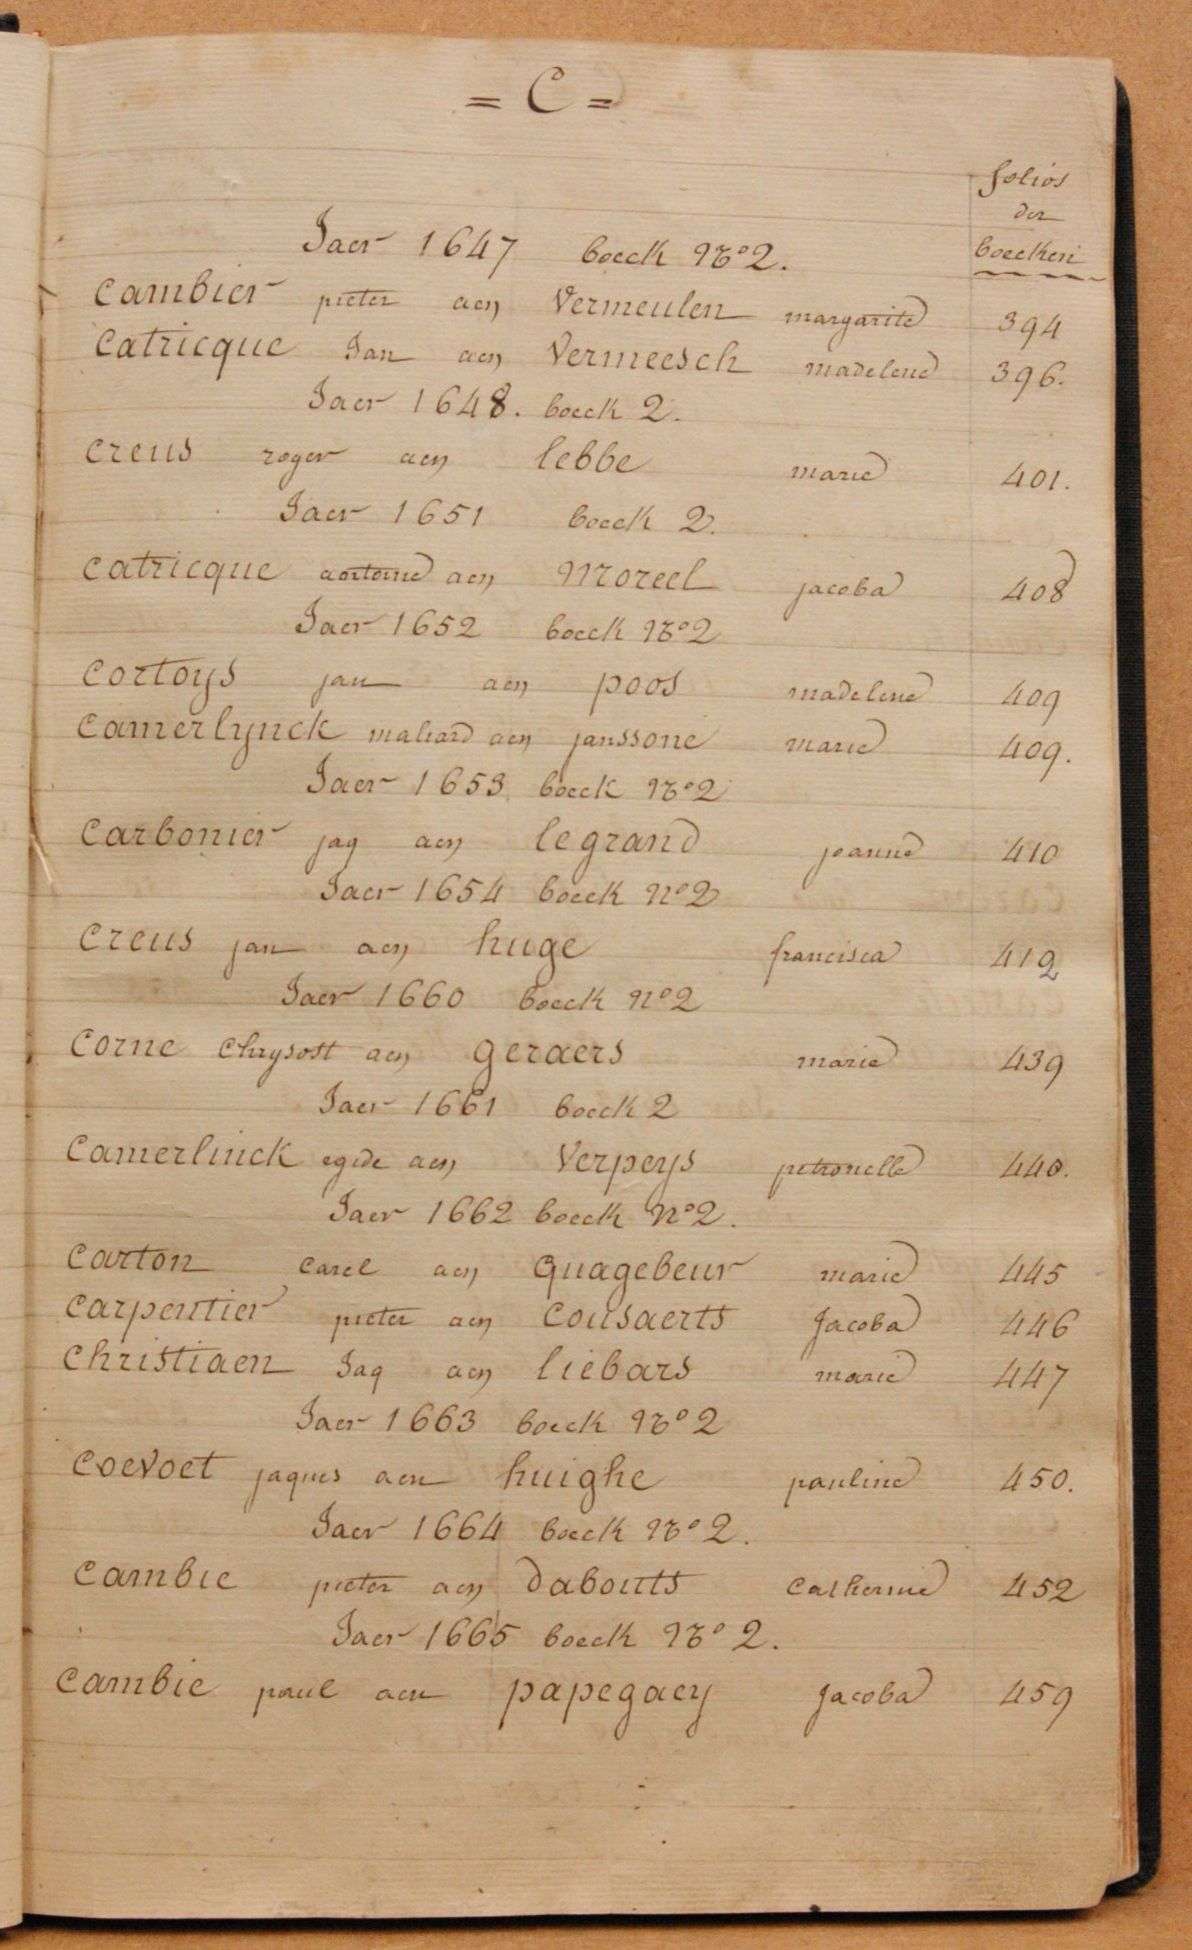 = C =
folios
der
boecken
Jaer 1647 boeck No 2.
Cambier pieter aen Vermeulen margarite 394
Catricque Jan aen Vermeesch madelene 396.
Jaer 1648. boeck 2.
Creus roger aen lebbe marie 401.
Jaer 1651 boeck 2.
Catricque antoine aen Moreel jacoba 408
Jaer 1652 boeck No 2
Cortoys jan aen poos madelene 409
Camerlynck maliard aen janssone marie 409.
Jaer 1653 boeck No 2
Carbonier jaq aen legrand joanne 410
Jaer 1654 boeck No 2
Creus jan aen huge francisca 412
Jaer 1660 boeck No 2
Corne Chrysost aen geraers marie 439
Jaer 1661 boeck 2
Camerlinck egide aen Verpeys petronelle 440.
Jaer 1662 boeck No 2.
Carton Carel aen Quagebeur marie 445
Carpentier pieter aen Cousaerts Jacoba 446
Christiaen Jaq aen liebars marie 447
Jaer 1663 boeck No 2
Coevoet jaques aen huighe pauline 450.
Jaer 1664 boeck No 2.
Cambie pieter aen dabouts Catherine 452
Jaer 1665 boeck No 2.
Cambie paul aen papegaey Jacoba 459